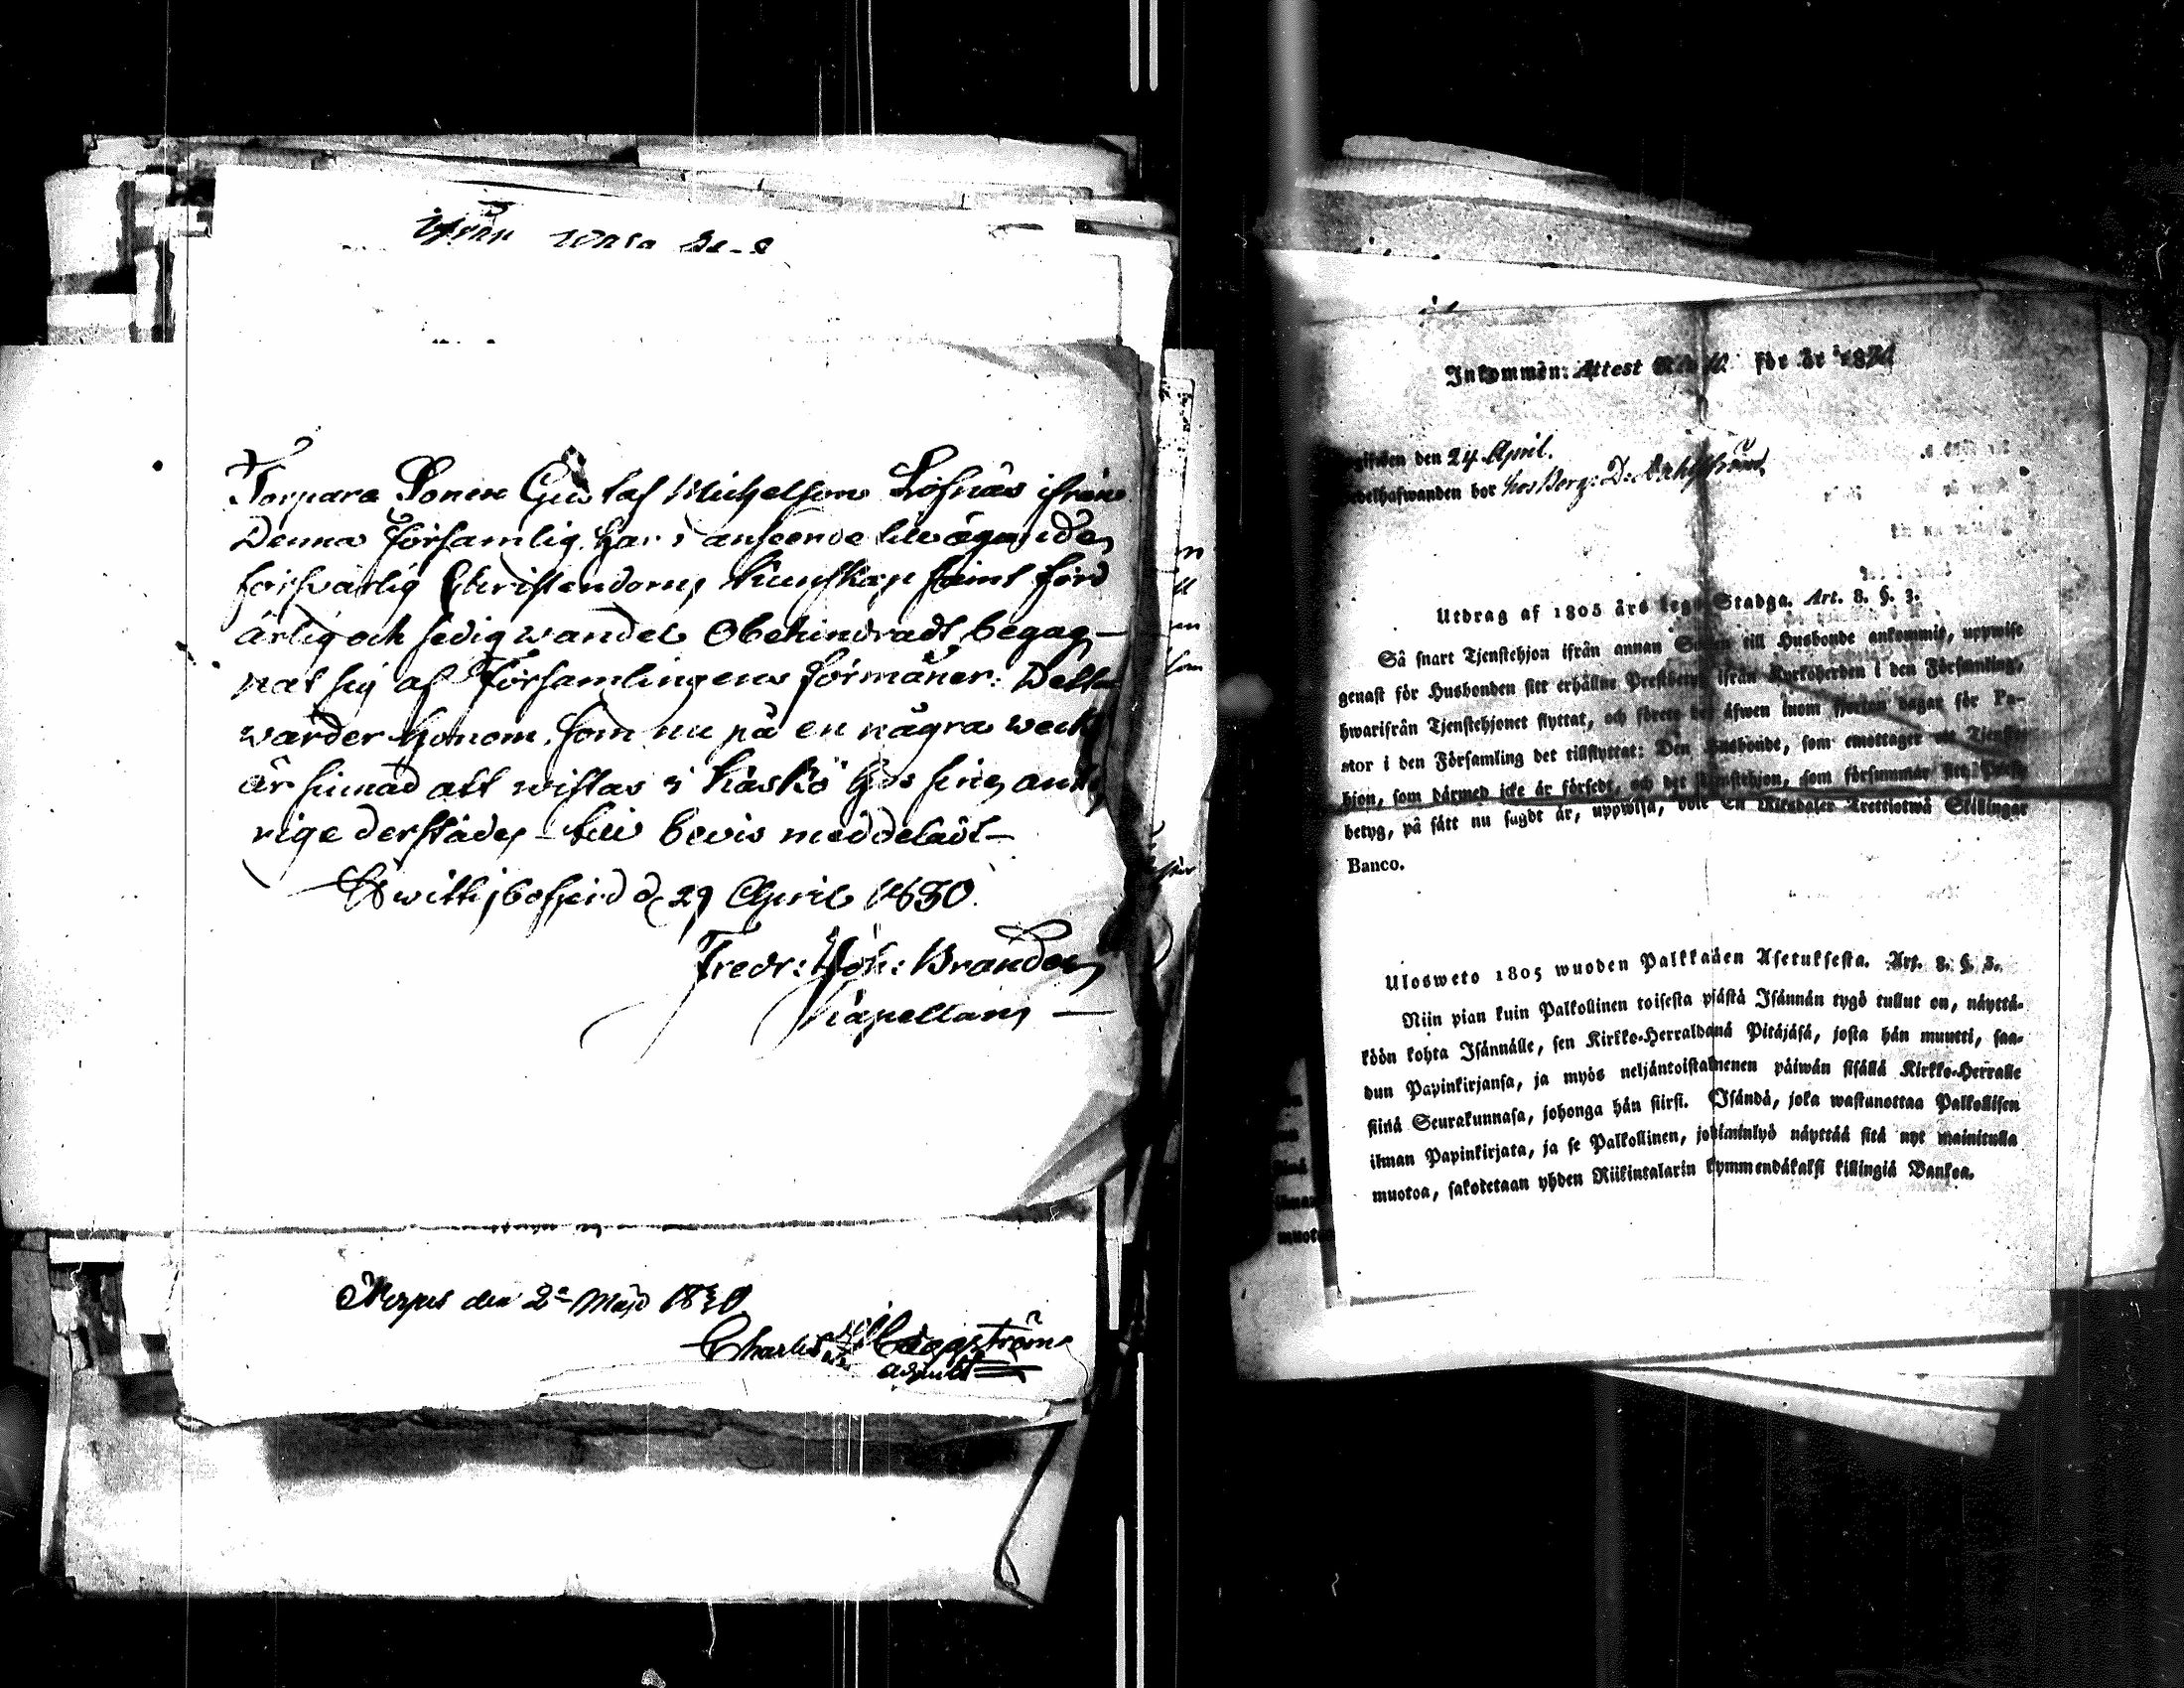 ifrån Wasa
Torpare Sonen Gustaf Michelsson Löfnäs ifrån
Denna Församling har i anseende till ägande
försvarlig Christendoms kunskap samt förd
ärlig och sedig wandel Obehindradt begag-
nat sig af Församlingens förmåner: Detta
warder honom, som nu på en några weck
är sinnad att wistas i Kaskö hos sina anhö
rige derstädes till bevis meddeladt
d 29 April 1830.
Fredr: Joh: Brander
Kapellan
Nerpes den 2 Maji 1830
Charles Häggström
adjunkt
Inkommen: Attest för år 1830
den 24 April.
bor hos Borg: D:
Utdrag af 1805 års lego Stadga. Art. 8. §. 3.
Så snart Tjenstehjon ifrån annan Socken till Husbonde ankommit, uppwise
genast för Husbonden sitt erhållne Prestbetyg ifrån Kyrkoherden i den Församling,
hwarifrån Tjenstehjonet flyttat, och förete det äfwen inom fjorton dagar för Pa-
stor i den Församling det tillflyttat: Den Husbonde, som emottager Tjenste-
hjon, som därmed icke är försedt, och det Tjenstehjon, som försummar sitt Prest-
betyg, på sätt nu sagdt är, uppwisa, böte En Riksdaler Trettiotwå Skillingar
Banco.
Ulosweto 1805 wuoden Palkkaäen Asetuksesta. Art. 8. §. 3.
Niin pian kuin Palkollinen toisesta pjästä Isännän tygö tullut on, näyttä-
köön kohta Isännälle, sen Kirkko-Herraldaná Pitäjäsä, josta hän muutti, saa-
dun Papinkirjansa, ja myös neljäntoistakmenen päiwän sisällä Kirkko-Herralle
siinä Seurakunnasa, johonga hän siirsi. Isändä, joka wastanottaa Palkollisen
ilman Papinkirjata, ja se Palkollinen, joka näyttää sitä nyt mainitulla
muotoa, sakotetaan yhden Riikintalarin kymmendäkaksi killingiä Bankoa.